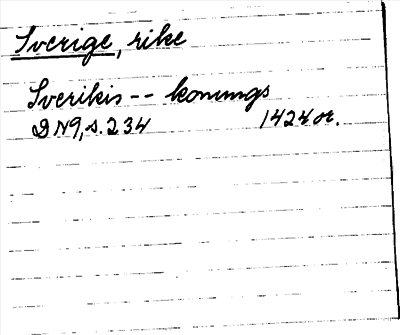 Sverige, rike
Sverikis -- konungs
DN9, s. 234 1424 or.